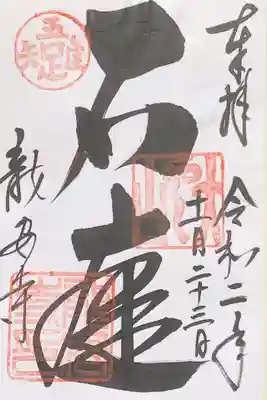 奉拝
令和二年
十一月二十三日
石庭
吾唯足知
龍安寺